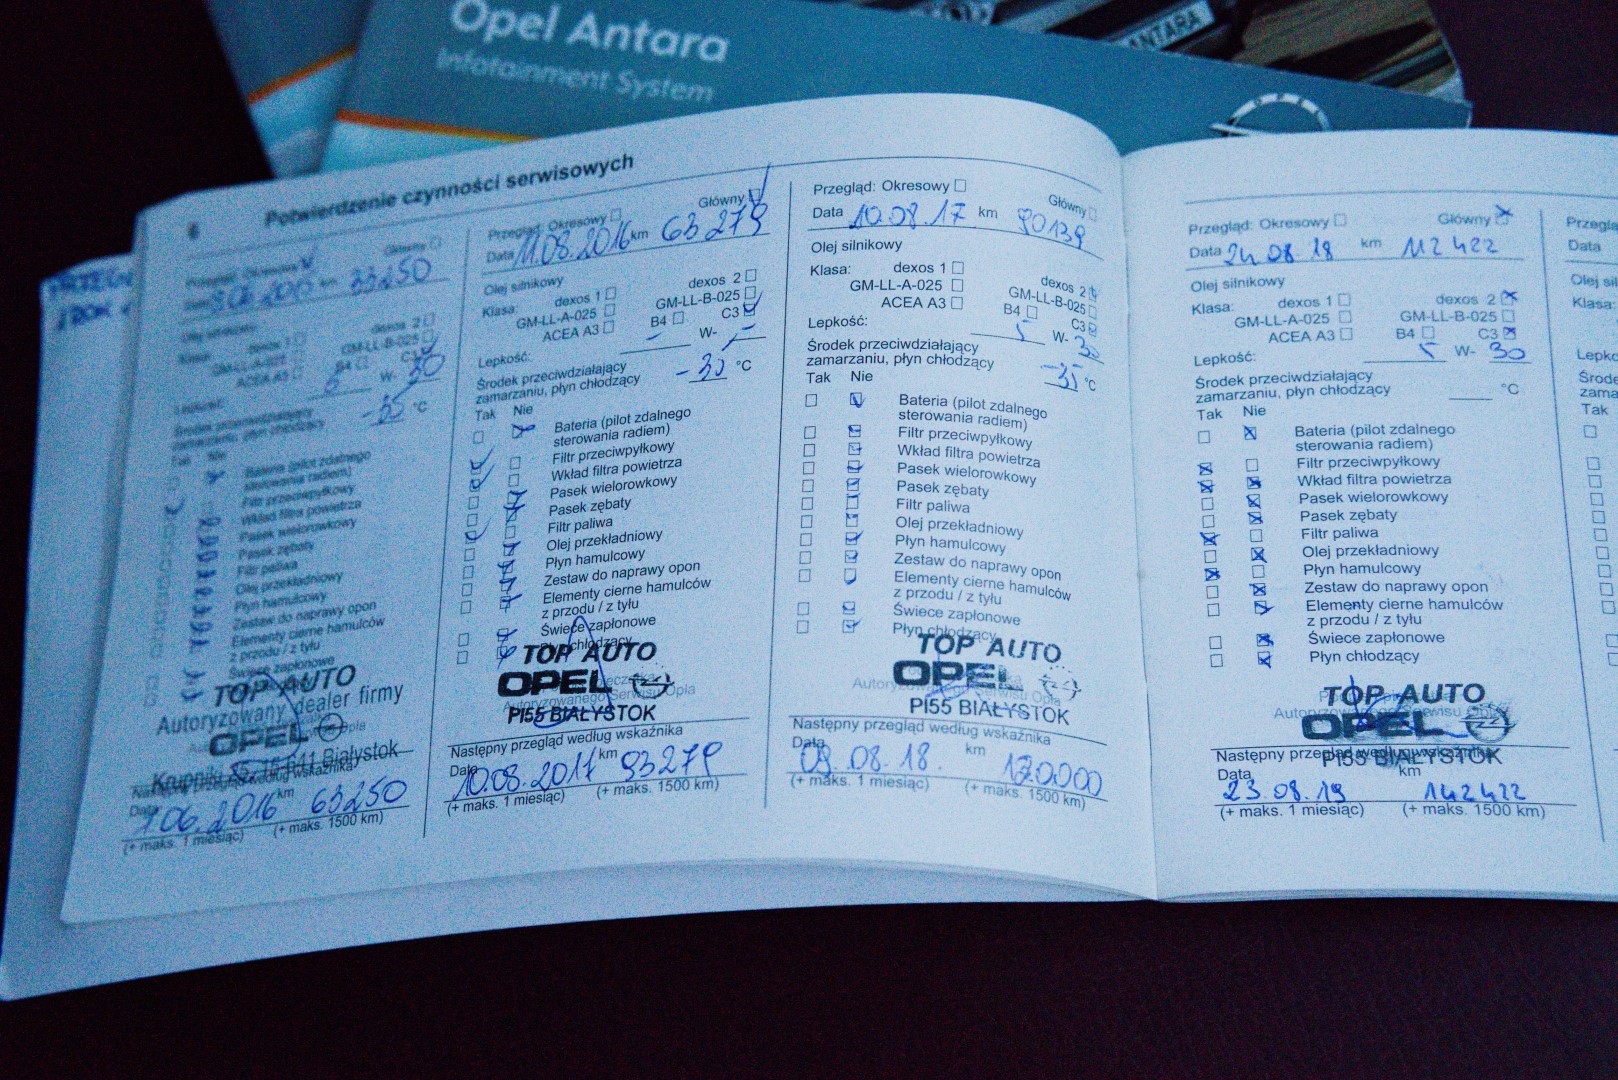 Opel Antara
Infotainment System
ANTARA
OPEL
6 Potwierdzenie czynności serwisowych
Przegląd: Okresowy
Główny
Data km 33250
Olej silnikowy
Klasa: dexos 1 dexos 2
GM-LL-A-025 GM-LL-B-025
ACEA A3 B4 C3
Lepkość: W- 30
Środek przeciwdziałający
zamarzaniu, płyn chłodzący °C
Tak Nie
Bateria (pilot zdalnego
sterowania radiem)
Filtr przeciwpyłkowy
Wkład filtra powietrza
Pasek wielorowkowy
Pasek zębaty
Filtr paliwa
Olej przekładniowy
Płyn hamulcowy
Zestaw do naprawy opon
Elementy cierne hamulców
z przodu / z tyłu
Świece zapłonowe
TOP AUTO
Autoryzowany dealer firmy
OPEL
Krupniki 15-641 Białystok
Następny przegląd według wskaźnika
Data 06.2016 km 63250
(+ maks. 1 miesiąc) (+ maks. 1500 km)
Przegląd: Okresowy Główny
Data 11.08.2016 km 63 279
Olej silnikowy
Klasa: dexos 1 dexos 2
GM-LL-A-025 GM-LL-B-025
ACEA A3 B4 C3
Lepkość: - W- -
Środek przeciwdziałający
zamarzaniu, płyn chłodzący -30 °C
Tak Nie
Bateria (pilot zdalnego
sterowania radiem)
Filtr przeciwpyłkowy
Wkład filtra powietrza
Pasek wielorowkowy
Pasek zębaty
Filtr paliwa
Olej przekładniowy
Płyn hamulcowy
Zestaw do naprawy opon
Elementy cierne hamulców
z przodu / z tyłu
Świece zapłonowe
Płyn chłodzący
TOP AUTO
OPEL
Autoryzowanego Serwisu Opla
PI55 BIAŁYSTOK
Następny przegląd według wskaźnika
Data 10.08.2017 km 93279
(+ maks. 1 miesiąc) (+ maks. 1500 km)
Przegląd: Okresowy Główny
Data 10.08.17 km 90139
Olej silnikowy
Klasa: dexos 1 dexos 2
GM-LL-A-025 GM-LL-B-025
ACEA A3 B4 C3
Lepkość: 5 W- 30
Środek przeciwdziałający
zamarzaniu, płyn chłodzący -35 °C
Tak Nie
Bateria (pilot zdalnego
sterowania radiem)
Filtr przeciwpyłkowy
Wkład filtra powietrza
Pasek wielorowkowy
Pasek zębaty
Filtr paliwa
Olej przekładniowy
Płyn hamulcowy
Zestaw do naprawy opon
Elementy cierne hamulców
z przodu / z tyłu
Świece zapłonowe
Płyn chłodzący
TOP AUTO
OPEL
Autoryzowanego Serwisu Opla
PI55 BIAŁYSTOK
Następny przegląd według wskaźnika
Data 09.08.18. km 120.000
(+ maks. 1 miesiąc) (+ maks. 1500 km)
Przegląd: Okresowy Główny
Data 24.08.18 km 112422
Olej silnikowy
Klasa: dexos 1 dexos 2
GM-LL-A-025 GM-LL-B-025
ACEA A3 B4 C3
Lepkość: 5 W- 30
Środek przeciwdziałający
zamarzaniu, płyn chłodzący °C
Tak Nie
Bateria (pilot zdalnego
sterowania radiem)
Filtr przeciwpyłkowy
Wkład filtra powietrza
Pasek wielorowkowy
Pasek zębaty
Filtr paliwa
Olej przekładniowy
Płyn hamulcowy
Zestaw do naprawy opon
Elementy cierne hamulców
z przodu / z tyłu
Świece zapłonowe
Płyn chłodzący
TOP AUTO
Autoryzowanego Serwisu Opla
OPEL
PI55 BIAŁYSTOK
Następny przegląd według wskaźnika
Data km
23.08.19 142422
(+ maks. 1 miesiąc) (+ maks. 1500 km)
Przegla
Data
Olej sil
Klasa:
Lepko
Środe
zama
Tak